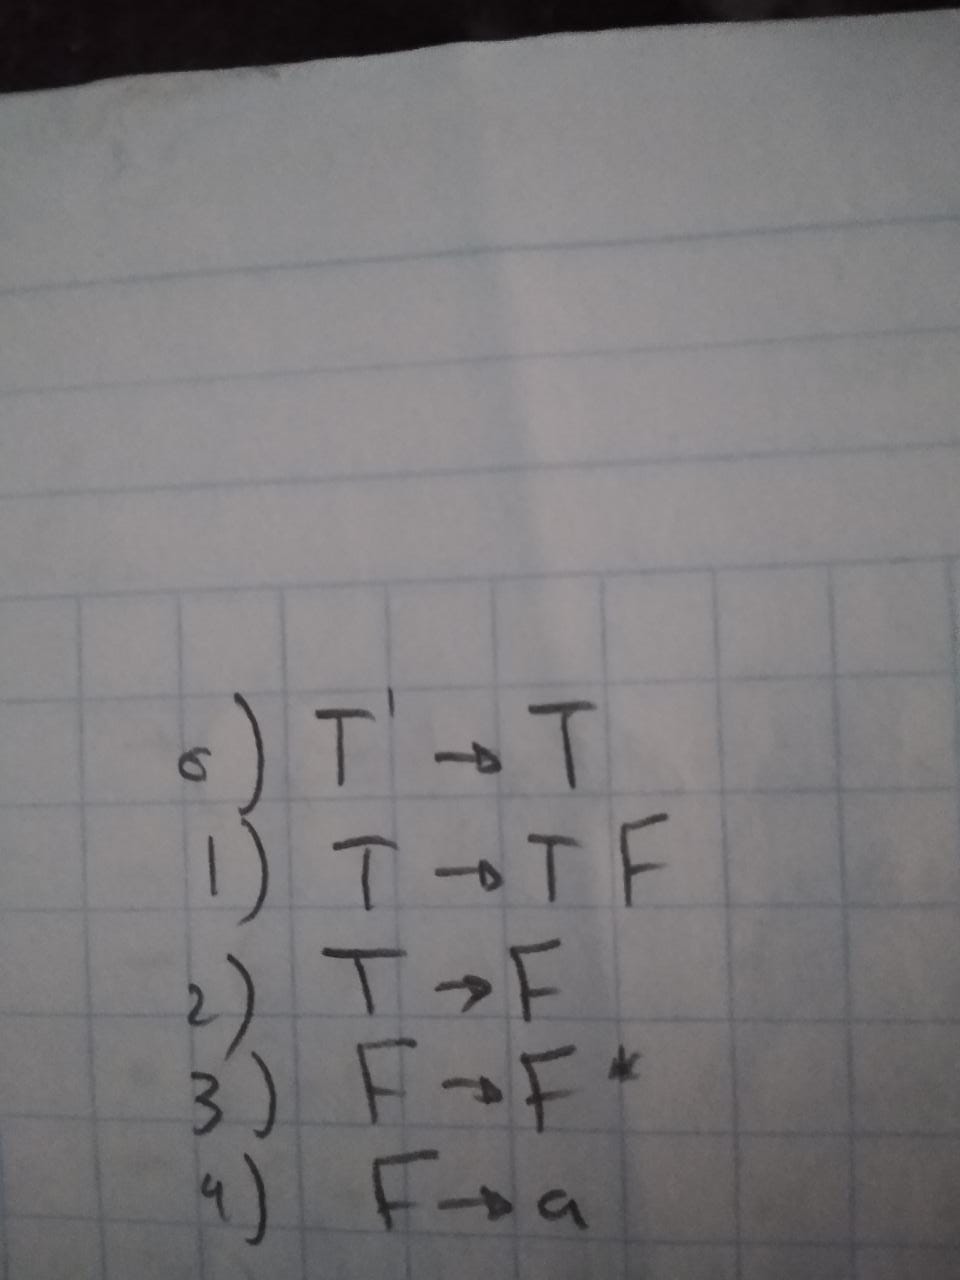 0) T' → T
1) T → T F
2) T → F
3) F → F *
4) F → a